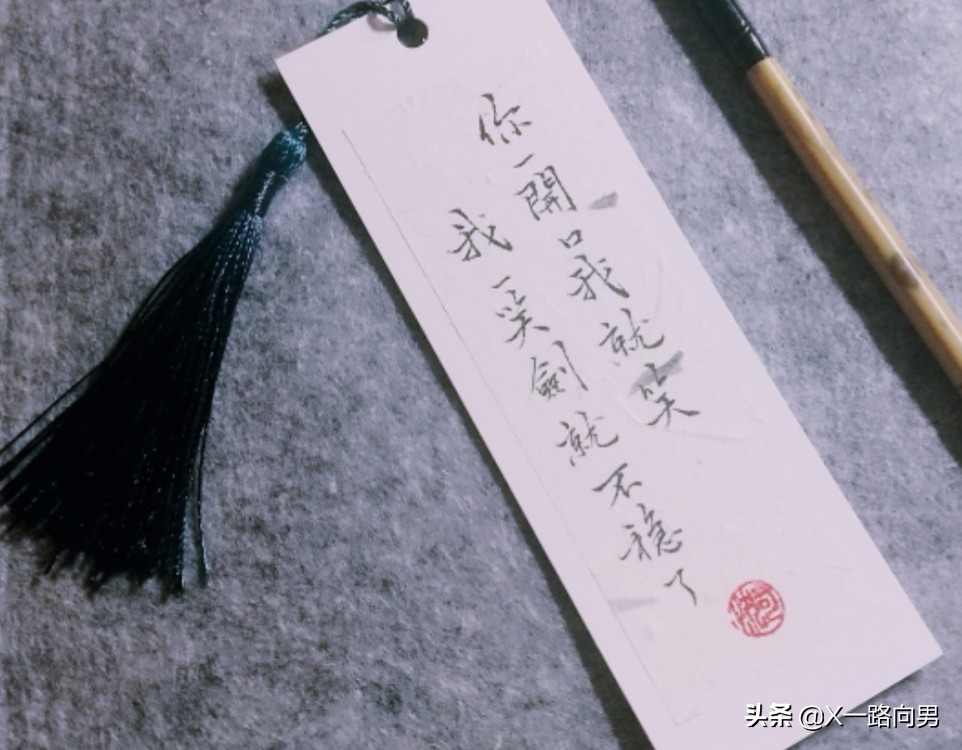 你一開口我就笑
我一笑劍就不穩了
头条 @X一路向男